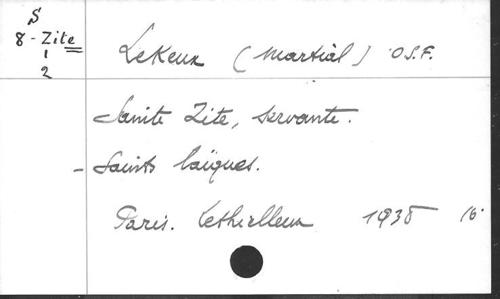 S
8 - Zite
1
2
Lekeux (Martial) O.S.F.
Sainte Zite, servante.
- Saints laïques.
Paris. Lethielleux 1935 16°